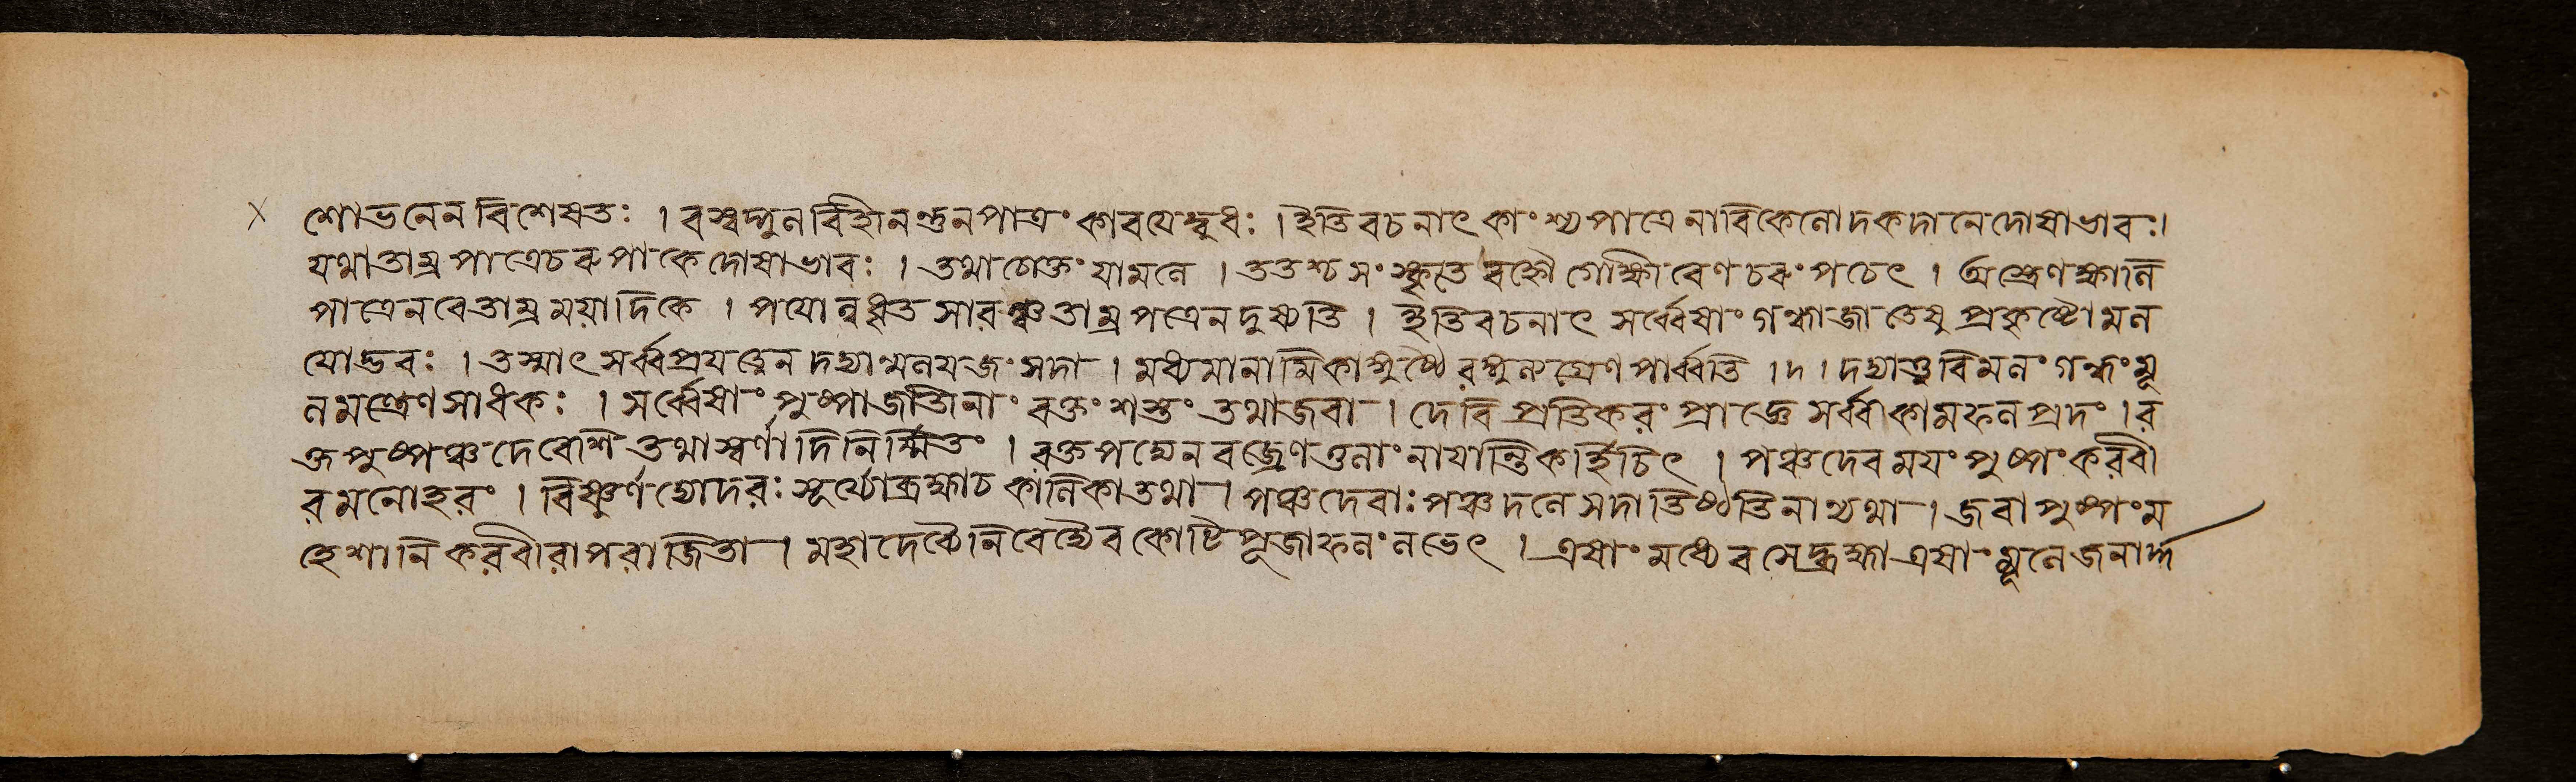 শোভনেন বিশেষতঃ । বস্বঙ্গুনর্বিহীনন্তুনপাত্রং কাবযেদ্বুধঃ । ইতি বচনাৎ কাংশ্য পাত্রে নাবিকেনোদকদানে দোষাভাবঃ।
যথা তাম্র পাত্রে চরুপাকে দোষাভাবঃ । তথা চোক্তং যামনে । ততশ্চ সংস্কৃতে বহ্নৌ গোক্ষীবেণ চরুং পচেৎ । অস্ত্রেণ ক্ষানি
পাত্রে নবে তাম্রময়াদিকে । পযোনুধৃত সারঞ্চ তাম্রপত্রে ন দুষ্যতি । ইতি বচনাৎ সর্ব্বেষাং গন্ধজাতেষু প্রকৃষ্টো মন
যোদ্ভবঃ । তস্মাৎ সর্ব্বপ্রযত্নেন দদ্যান্মনযজং সদা । মধ্যমানামিকাঙ্গুষ্ঠৈরঙ্গুল্যগ্রেণ পার্ব্বতি । দ । দদ্যাত্তু বিমনং গন্ধং মূ
ন মন্ত্রেণ সাধকঃ । সর্ব্বেষাং পুষ্পাজাতিনাং বক্তং শস্তং তথা জবা । দেবি প্রতিকরং প্রাজ্ঞে সর্ব্বকামফনপ্রদং । র
ক্তপুষ্পঞ্চ দেবেশি তথা স্বর্ণাদিনির্ম্মিতং । বক্তপদ্মেন বজ্রেণ তুনাং নাযান্তি কর্হিচিৎ । পঞ্চদেবময়ং পুষ্পং করবী
র মনোহরং । বিষ্ণুর্গণ্যোদরঃ সূর্যো ব্রহ্মা চ কানিকা তথা । পঞ্চদেবাঃ পঞ্চদনে সদা তিষ্ঠতি নান্যথা । জবাপুষ্পং ম
হেশানি করবীরাপরাজিতা । মহাদেব্যৈ নিবেদ্যৈব কোটিপূজাফনং নভেৎ । এষাং মধ্যে বসেদ্ব্রহ্মা এষাং মূনে জনার্দ্দ